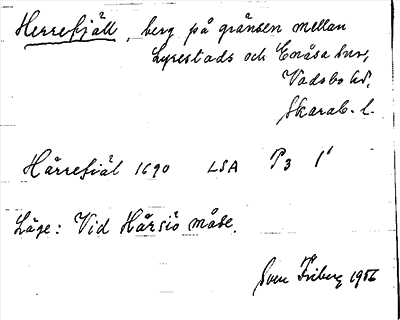 Herrefjäll, berg på gränsen mellan
Lyrestads och Enåsa snr,
Vadsbo hd,
Skarab. l.
Härrefiäl 1690 LSA P3 1¹
Läge: Vid Hårsiö måse.
Sven Friberg 1956